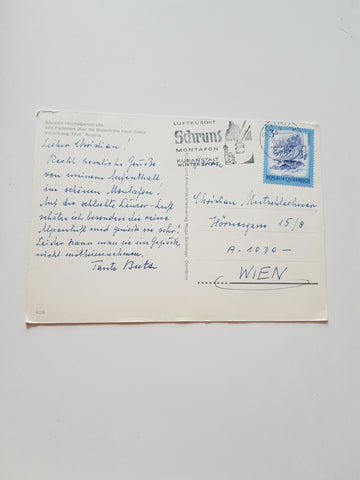 Silvretta Hochalpenstraße
von Partenen über die Bielerhöhe nach Galtür
Vorarlberg, Tirol - Austria
LUFTKURORT
Schruns
MONTAFON
KURANSTALT
WINTERSPORT
3 S
REPUBLIK ÖSTERREICH
Lieber Christian!
Recht herzliche Grüße
von meinem Aufenthalt
im schönen Montafon!
Auf die schlechte Wiener-Luft
schätze ich besonders die reine
Alpenluft und genieße sie sehr!
Leider kann man sie im Gepäck
nicht mitheimnehmen.
Tante Berta
Christian Mutschlechner
Hörnesgasse 15/8
A-1030-
WIEN